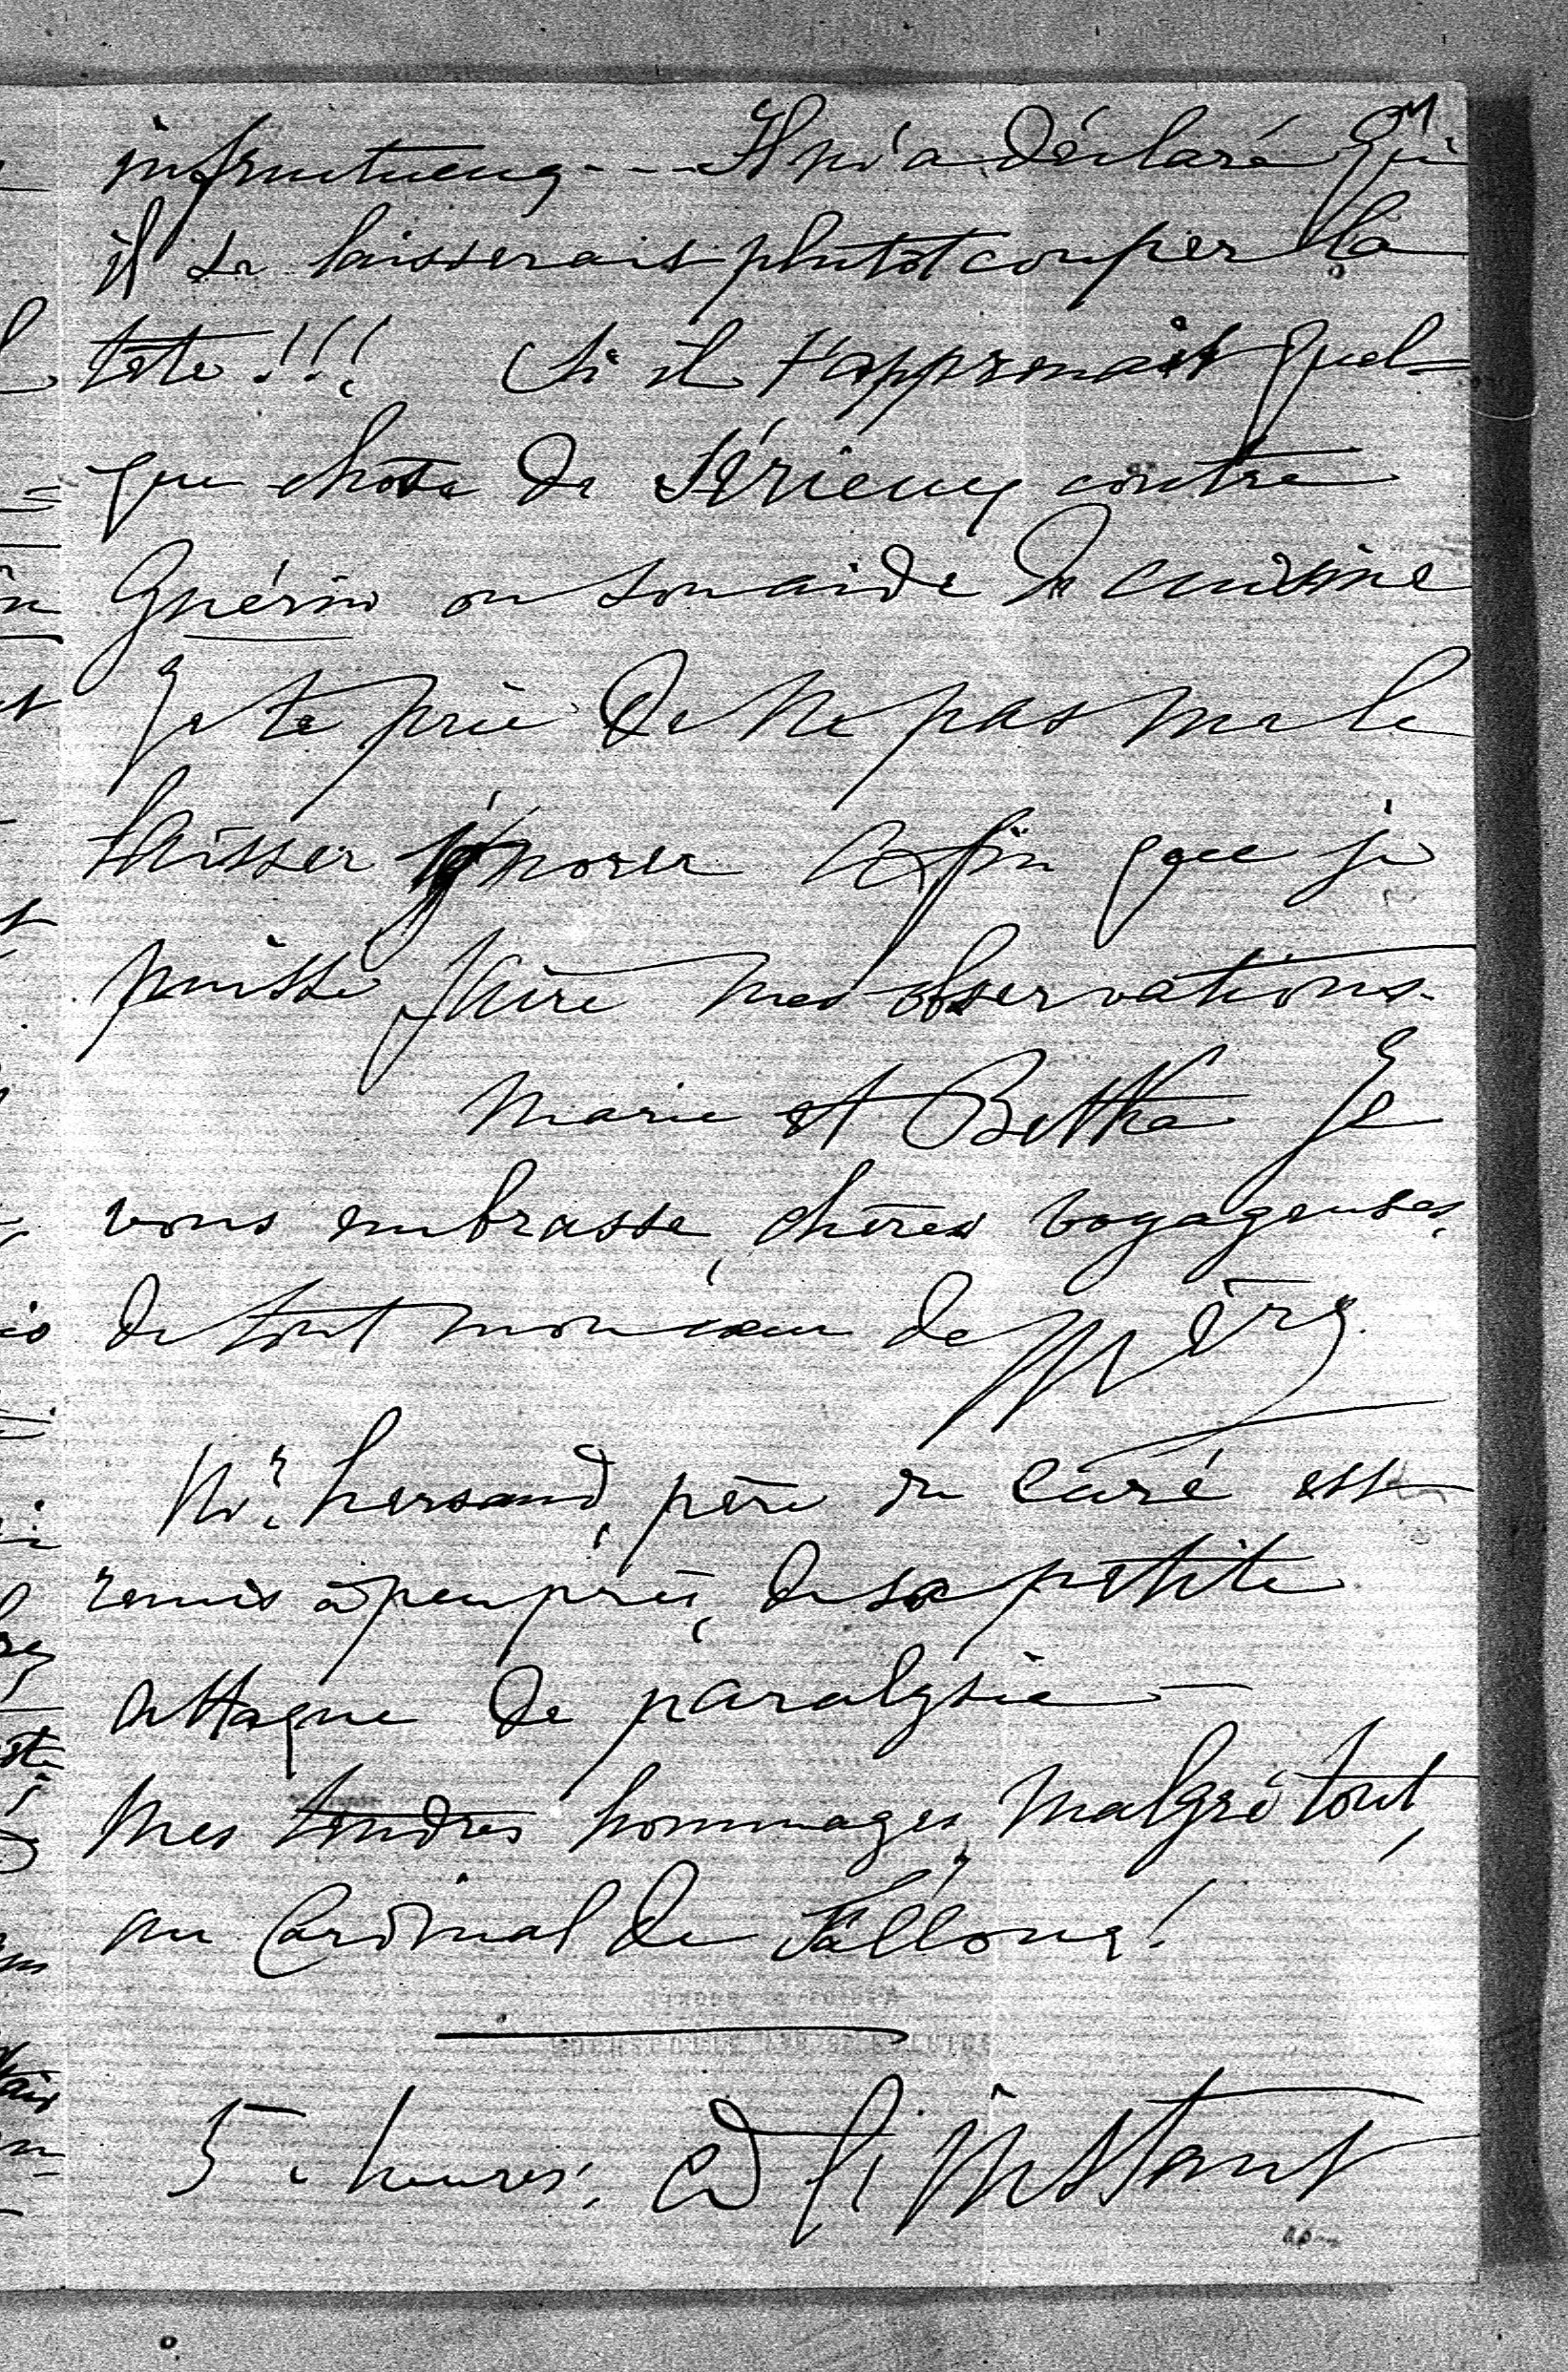 infructueux --- Il m'a déclaré qu'
il se laisserait plutôt couper la
tête !!! Si il t'apprenait quel=
que chose de sérieux contre
Guérin ou son aide de cuisine
Je te prie de ne pas me le
laisser ignorer afin que je
puisse faire mes observations.
Marie et Betka Je
vous embrasse, chères voyageuses,
de tout mon cœur de père
Mr. hersand, père du curé est
remis à peu près, de sa petite
attaque de paralysie —
Mes tendres hommages, malgré tout,
au Cardinal de Falloux!
5 heures, à l'instant